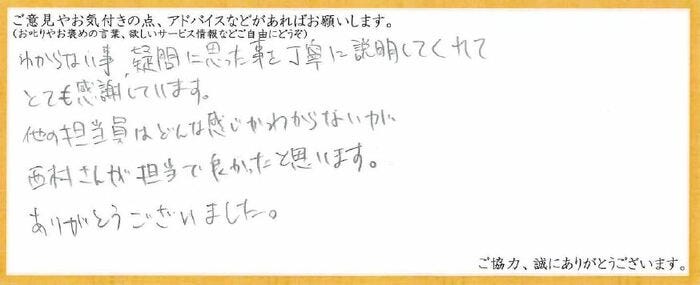 ご意見やお気付きの点、アドバイスなどがあればお願いします。
(お叱りやお褒めの言葉、欲しいサービス情報などご自由にどうぞ)
わからない事、疑問に思った事を丁寧に説明してくれて
とても感謝しています。
他の担当員はどんな感じかわからないが、
西村さんが担当で良かったと思います。
ありがとうございました。
ご協力、誠にありがとうございます。